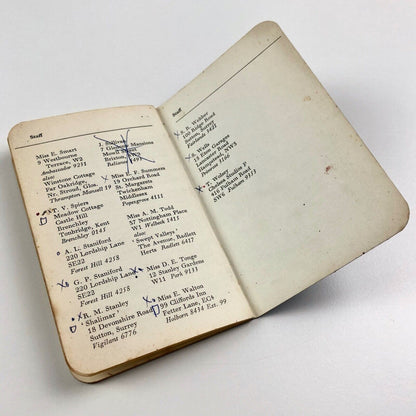 Staff
Miss E. Smart
9 Westbourne
Terrace, W2
Ambassador 9231
also:
Wimbourne Cottage
Far Oakridge,
Nr. Stroud, Glos.
T. V. Spiers
Meadow Cottage
Castle Hill
Brenchley
Tonbridge, Kent
Brenchley 0145
A. L. Staniford
220 Lordship Lane
SE22
Forest Hill 4258
G. P. Staniford
220 Lordship Lane
SE22
Forest Hill 4258
R. M. Stanley
'Shalimar'
18 Devonshire Road
Sutton, Surrey
Vigilant 6776
J. Sullivan
Brixton, SW9
Reliance
Miss E. F. Summers
19 Orchard Road
St. Margarets
Twickenham
Middlesex
Popesgrove 4111
Miss A. M. Todd
57 Nottingham Place
W1
also:
'Swept Valleys'
The Avenue, Radlett
Herts Radlett 6417
Miss D. E. Tonge
12 Stanley Gardens
W11 Park 9131
Miss E. Walton
99 Cliffords Inn
Fetter Lane, EC4
Holborn 8434 Ext. 99
Staff
Sutton, Surrey
Hampstead, NW3
SW6 Fulham